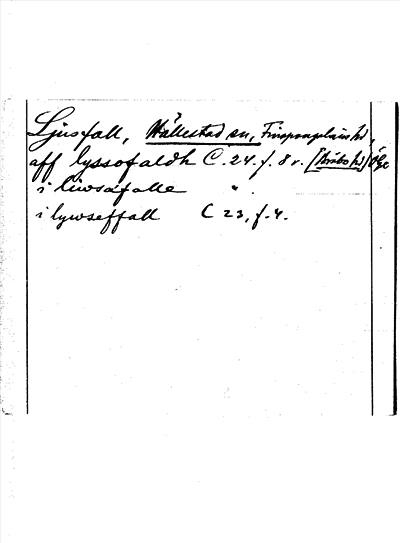 Ljusfall, Hällestad sn, Finspångaläns hd,
aff lyssofaldh C. 24. f. 8 v. [Bråbo hd] Ög.
i liwsafalle "
i lywseffall C 23, f. 4.